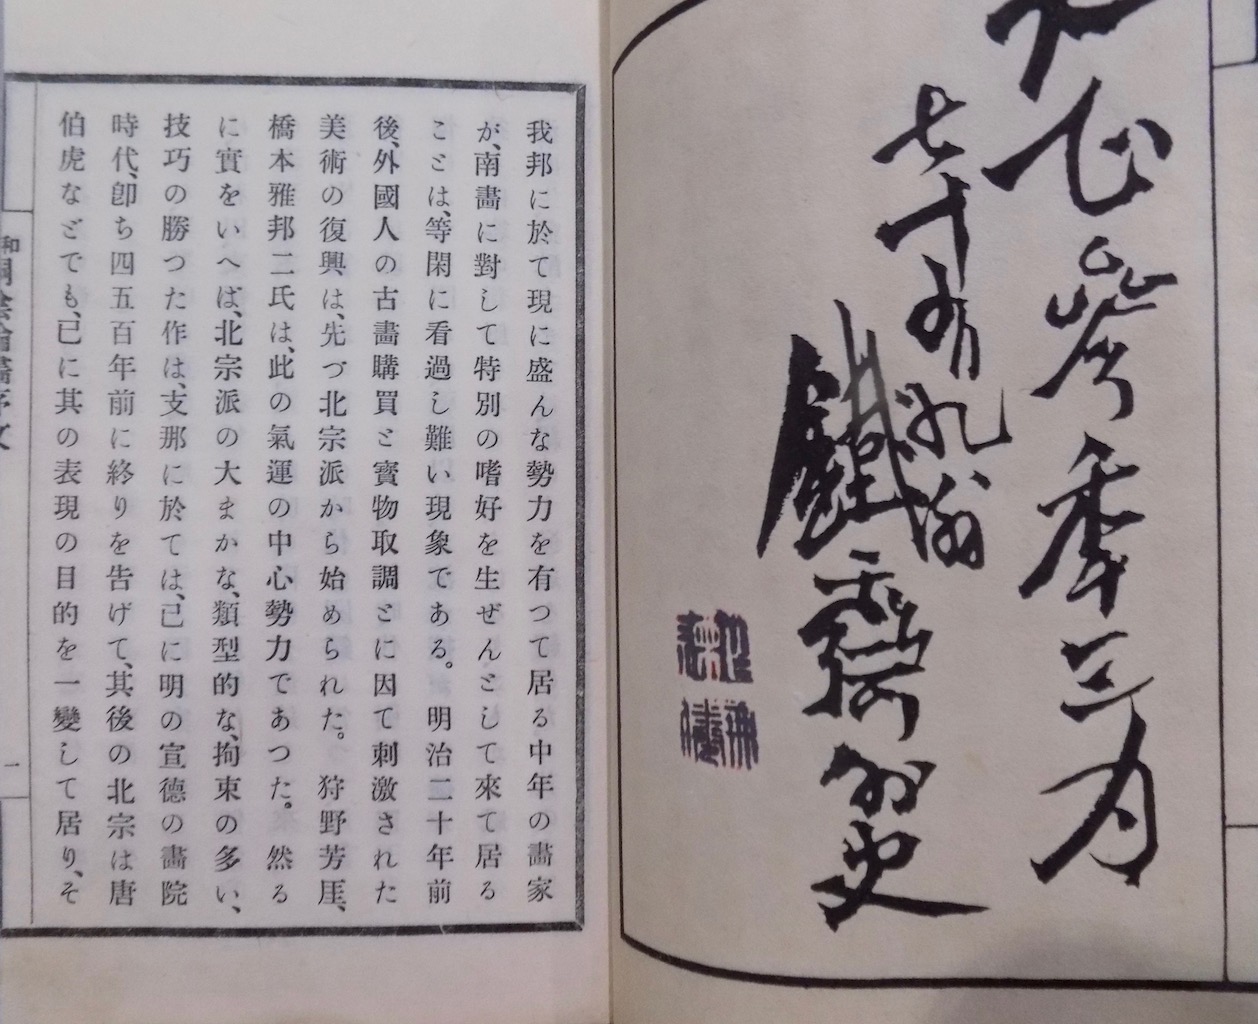 正季三月
七十有九翁
鐵齋外史
我邦に於て現に盛んな勢力を有つて居る中年の畵家
が、南畵に對して特別の嗜好を生ぜんとして來て居る
ことは、等閑に看過し難い現象である。明治二十年前
後、外國人の古畵購買と寳物取調とに因て刺激された
美術の復興は、先づ北宗派から始められた。狩野芳厓、
橋本雅邦二氏は、此の氣運の中心勢力であつた。然る
に實をいへば、北宗派の大まかな、類型的な、拘束の多い、
技巧の勝つた作は、支那に於ては、已に明の宣德の畵院
時代、卽ち四五百年前に終りを告げて、其後の北宗は唐
伯虎などでも、已に其の表現の目的を一變して居り、そ
和桐陰論畵序文
一